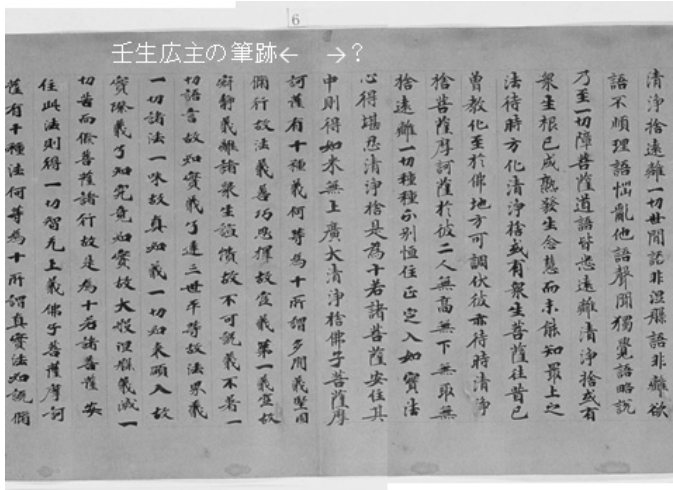 6
壬生広主の筆跡← →?
清淨捨遠離一切世間語非涅槃語非離欲
語不順理語惱亂他語聲聞獨覺語略說
乃至一切障菩薩道語皆悉遠離清淨捨或有
衆生根已成熟發生念慧而未能知最上之
法待時方化清淨捨或有衆生菩薩往昔已
曾教化至於佛地方可調伏彼亦待時清淨
捨菩薩摩訶薩於彼二人無高無下無取無
捨遠離一切種種分別恒住正定入如實法
心得堪忍清淨捨是為十若諸菩薩安住其
中則得如来無上廣大清淨捨佛子菩薩摩
訶薩有十種義何等為十所謂多聞義堅固
修行故法義善巧思擇故空義第一義空故
寂靜義離諸衆生諠憒故不可說義不著一
切語言故如實義了達三世平等故法界義
一切諸法一味故真如義一切如来順入故
實際義了知究竟如實故大般涅槃義滅一
切苦而修菩薩諸行故是為十若諸菩薩安
住此法則得一切智无上義佛子菩薩摩訶
薩有十種法何等為十所謂真實法如說修